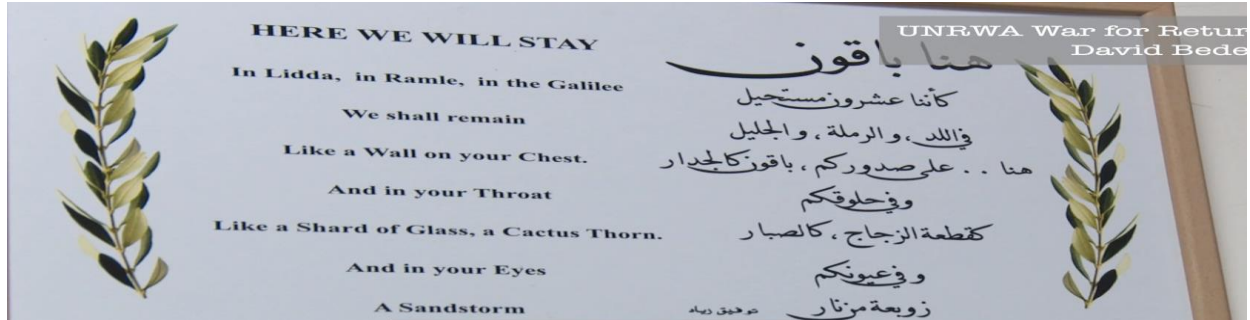 UNRWA War for Retur
David Bede
HERE WE WILL STAY
In Lidda, in Ramle, in the Galilee
We shall remain
Like a Wall on your Chest.
And in your Throat
Like a Shard of Glass, a Cactus Thorn.
And in your Eyes
A Sandstorm
هنا باقون
كأننا عشرون مستحيل
في اللد، والرملة، والجليل
هنا .. على صدوركم، باقون كالجدار
وفي حلوقكم
كقطعة الزجاج، كالصبار
وفي عيونكم
زوبعة من نار
توفيق زياد